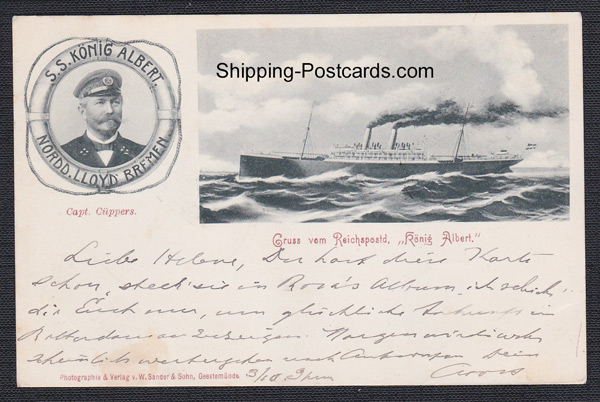 S.S. KÖNIG ALBERT.
NORDD. LLOYD BREMEN
Shipping-Postcards.com
Capt. Cüppers.
Gruss vom Reichspostd. „König Albert."
Liebe Helene, Du hast diese Karte
schon, steck' sie in Rosa's Album, ich schicke
sie Euch nur, um glückliche Ankunft in
Rotterdam anzuzeigen. Morgen wird's wahr
scheinlich weitergehen nach Antwerpen Dein
Photographie & Verlag v. W. Sander & Sohn, Geestemünde.
3/10